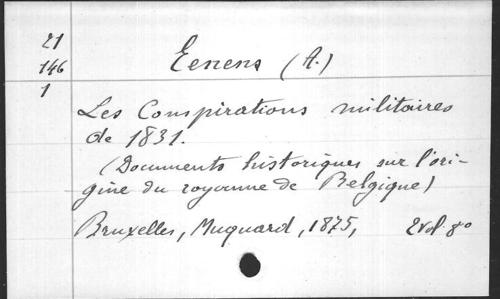 21
146
1
Eenens (A.)
Les Conspirations militaires
de 1831.
(Documents historiques sur l'ori-
gine du royaume de Belgique)
Bruxelles, Muquard, 1875, 2 vol. 8o